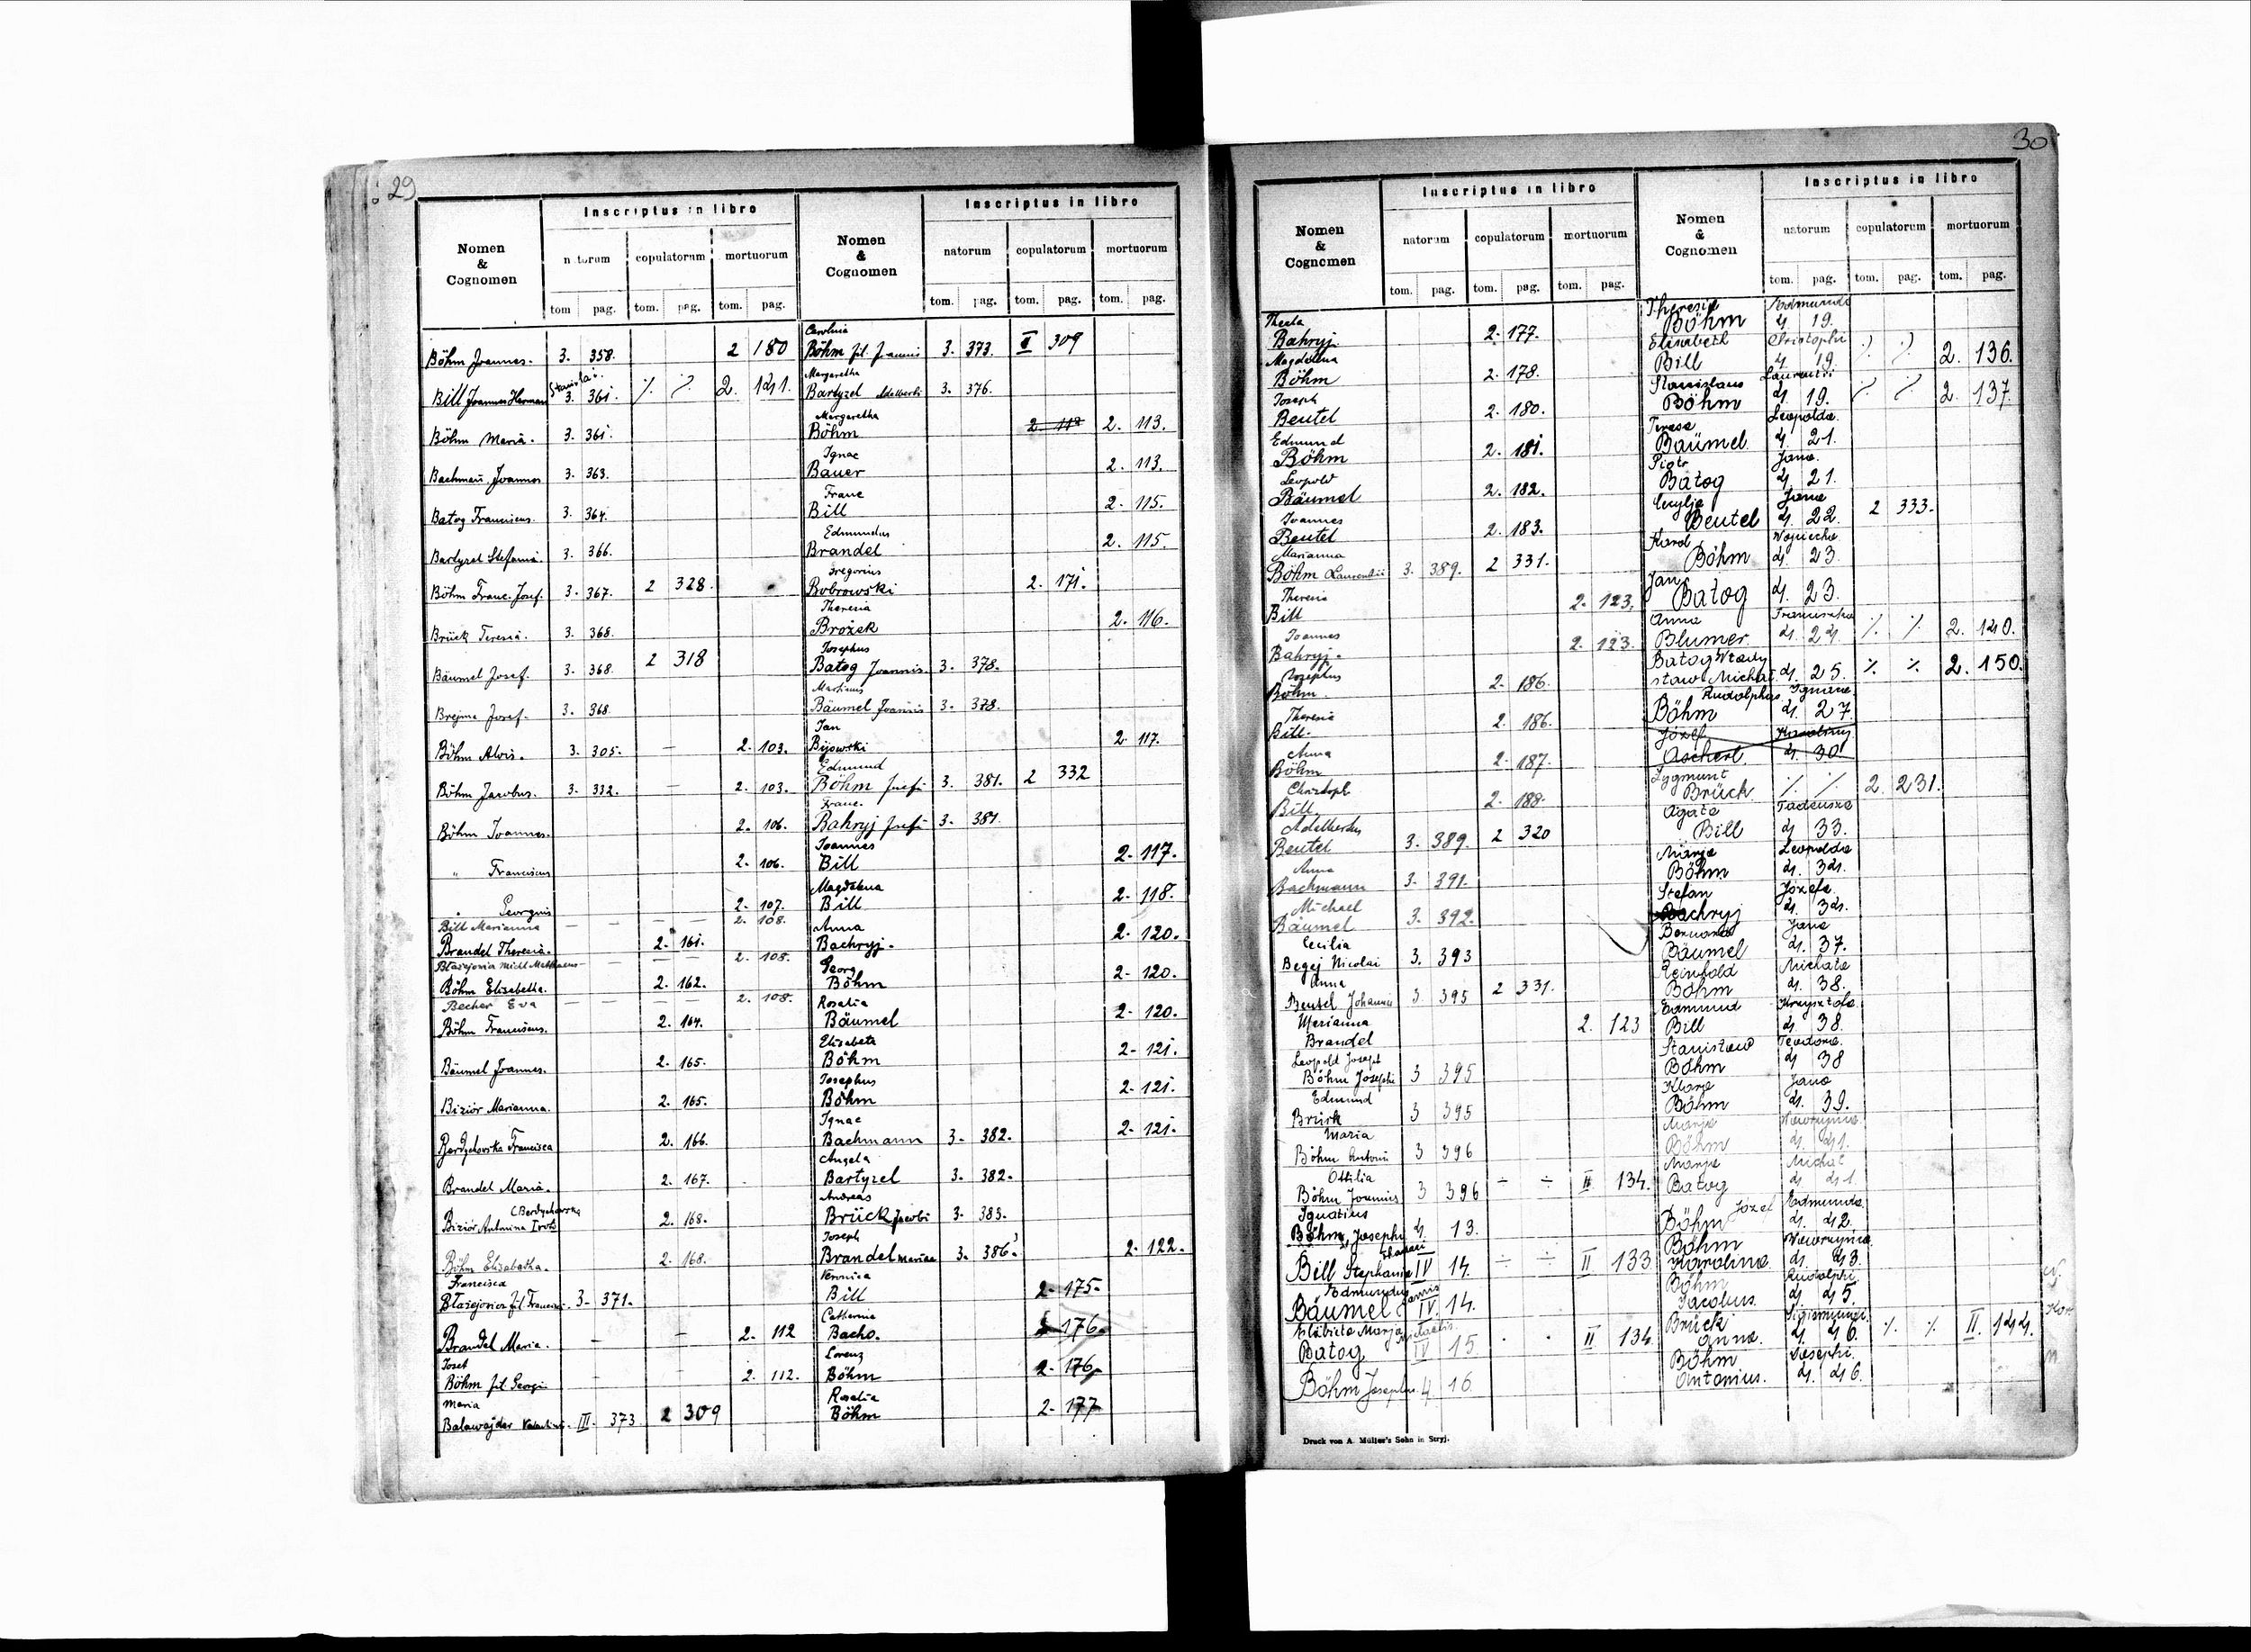 29
Inscriptus in libro
Nomen & Cognomen
natorum copulatorum mortuorum
tom pag. tom. pag. tom. pag.
Böhm Joannes. 3. 358. 2 180
Stanislai.
Bill Joannes Herman 3. 361. ./. ./. 2. 141.
Böhm Maria. 3. 361.
Bachman Joannes 3. 363.
Batog Franciscus. 3. 364.
Bartyzel Stefania. 3. 366.
Böhm Franc. Josef. 3. 367. 2 328.
Brück Teresia. 3. 368.
Bäumel Josef. 3. 368. 2 318
Brejma Josef. 3. 368.
Böhm Alois. 3. 305. — 2. 103.
Böhm Jacobus. 3. 332. — 2. 103.
Böhm Joannes. 2. 106.
" Franciscus 2. 106.
" Georgius 2. 107.
Bill Marianna — — — — 2. 108.
Brandel Theresia. 2. 161.
Błażejovia Mich Mathaeus — — — — 2. 108.
Böhm Elisabetha. 2. 162.
Becher Eva — — — — 2. 108.
Böhm Franciscus. 2. 164.
Bäumel Joannes. 2. 165.
Bizior Marianna. 2. 165.
Berdychovska Francisca 2. 166.
Brandel Maria. 2. 167.
(Berdychowska
Bizior Antonina Iroto 2. 168.
Böhm Elisabetha. 2. 168.
Francisca
Błażejovior fil. Francisci. 3. 371.
Brandel Maria. — — 2. 112
Josef
Böhm fil. Georgii — — 2. 112.
Maria
Balawajder Valentini. III. 373 2 309
Inscriptus in libro
Nomen & Cognomen
natorum copulatorum mortuorum
tom. pag. tom. pag. tom. pag.
Carolina
Böhm fil. Joannis 3. 373. II 309
Margaretha
Bartyzel Adelberti 3. 376.
Margaretha
Böhm 2. 112 2. 113.
Ignac
Bauer 2. 113.
Franc
Bill 2. 115.
Edmundus
Brandel 2. 115.
Gregorius
Bobrowski 2. 171.
Theresia
Brożek 2. 116.
Josephus
Batog Joannis. 3. 378.
Martinus
Bäumel Joannis 3. 378.
Jan
Bijowski 2. 117.
Edmund
Böhm Josefi 3. 381. 2 332
Franc.
Bahryj Josefi 3. 381.
Joannes
Bill 2. 117.
Magdalena
Bill 2. 118.
Anna
Bachryj. 2. 120.
Georg
Böhm 2. 120.
Rosalia
Bäumel 2. 120.
Elisabeta
Böhm 2. 121.
Josephus
Böhm 2. 121.
Ignac
Bachmann 3. 382. 2. 121.
Angela
Bartyzel 3. 382.
Andreas
Brück Jacobi 3. 383.
Joseph
Brandel Mariae 3. 386. 2. 122.
Veronica
Bill 2. 175.
Catharina
Bacho. 2 176.
Lorenz
Böhm 2. 176.
Rosalia
Böhm 2. 177
30
Inscriptus in libro
Nomen & Cognomen
natorum copulatorum mortuorum
tom. pag. tom. pag. tom. pag.
Thecla
Bahryj. 2. 177.
Magdalena
Böhm 2. 178.
Joseph
Beutel 2. 180.
Edmund
Böhm 2. 181.
Leopold
Bäumel 2. 182.
Joannes
Beutel 2. 183.
Marianna
Böhm Laurentii 3. 389. 2 331.
Theresia
Bill 2. 123.
Joannes
Bahryj. 2. 123.
Josephus
Böhm 2. 186.
Theresia
Bill. 2. 186.
Anna
Böhm 2. 187.
Christoph
Bill 2. 188.
Adelbertus
Beutel 3. 389. 2 320
Anna
Bachmann 3. 391.
Michael
Bäumel 3. 392.
Cecilia
Begej Nicolai 3. 393
Anna
Beutel Johannis 3 395 2 331.
Marianna
Brandel 2. 123
Leopold Joseph
Böhm Josephi 3 395
Edmund
Brück 3 395
Maria
Böhm Antoni 3 396
Ottilia
Böhm Joannis 3 396 ÷ ÷ II 134.
Ignatius
Böhm, Josephi 4. 13.
Bill Stephania IV 14. ÷ ÷ II 133
Edmundus Jannis
Bäumel IV. 14.
Elżbieta Marja Michaelis.
Batog IV 15 . . II 134
Böhm Josephus. 4 16.
Inscriptus in libro
Nomen & Cognomen
natorum copulatorum mortuorum
tom. pag. tom. pag. tom. pag.
Theresia Edmunda
Böhm 4. 19.
Elisabeth Christophi
Bill 4. 19. ./. ./. 2. 136.
Stanislaus Laurentii
Böhm 4. 19. ./. ./. 2. 137.
Teresa Leopolda
Baümel 4. 21.
Piotr Jana.
Batog 4. 21.
Cecylja Jana
Beutel 4. 22. 2 333.
Karol Wojciecha
Böhm 4. 23.
Jan
Batog 4. 23.
Anna Franciszka
Blumer. 4. 24. ./. ./. 2. 140.
Batog Włady
sław Michał. 4. 25. ./. ./. 2. 150.
Rudolphus Ignaca
Böhm 4. 27.
Józef Karoliny
Ascherl. 4. 30
Zygmunt
Brück. ./. ./. 2. 231.
Agata Tadeusza
Bill 4 33.
Marja Leopolda
Böhm 4. 34.
Stefan Józefa.
Bachryj 4. 34.
Bernard Jana
Bäumel 4. 37.
Reinhold Michała
Böhm 4. 38.
Edmund Krzysztofa
Bill 4. 38.
Stanisław Teodora.
Böhm 4 38
Klara Jana
Böhm 4. 39.
Marja Wawrzyńca.
Böhm 4. 41.
Marja Michał
Batog 4 41.
Józef Edmunda.
Böhm 4. 42.
Böhm Wawrzyńca.
Karolina 4. 43.
Böhm Rudolphi
Jacobus. 4 45.
Brück Sigismundi.
Anna. 4. 46. ./. ./. II. 144.
Böhm Josephi.
Antonius. 4. 46.
Druck von A. Müller's Sohn in Stryj.